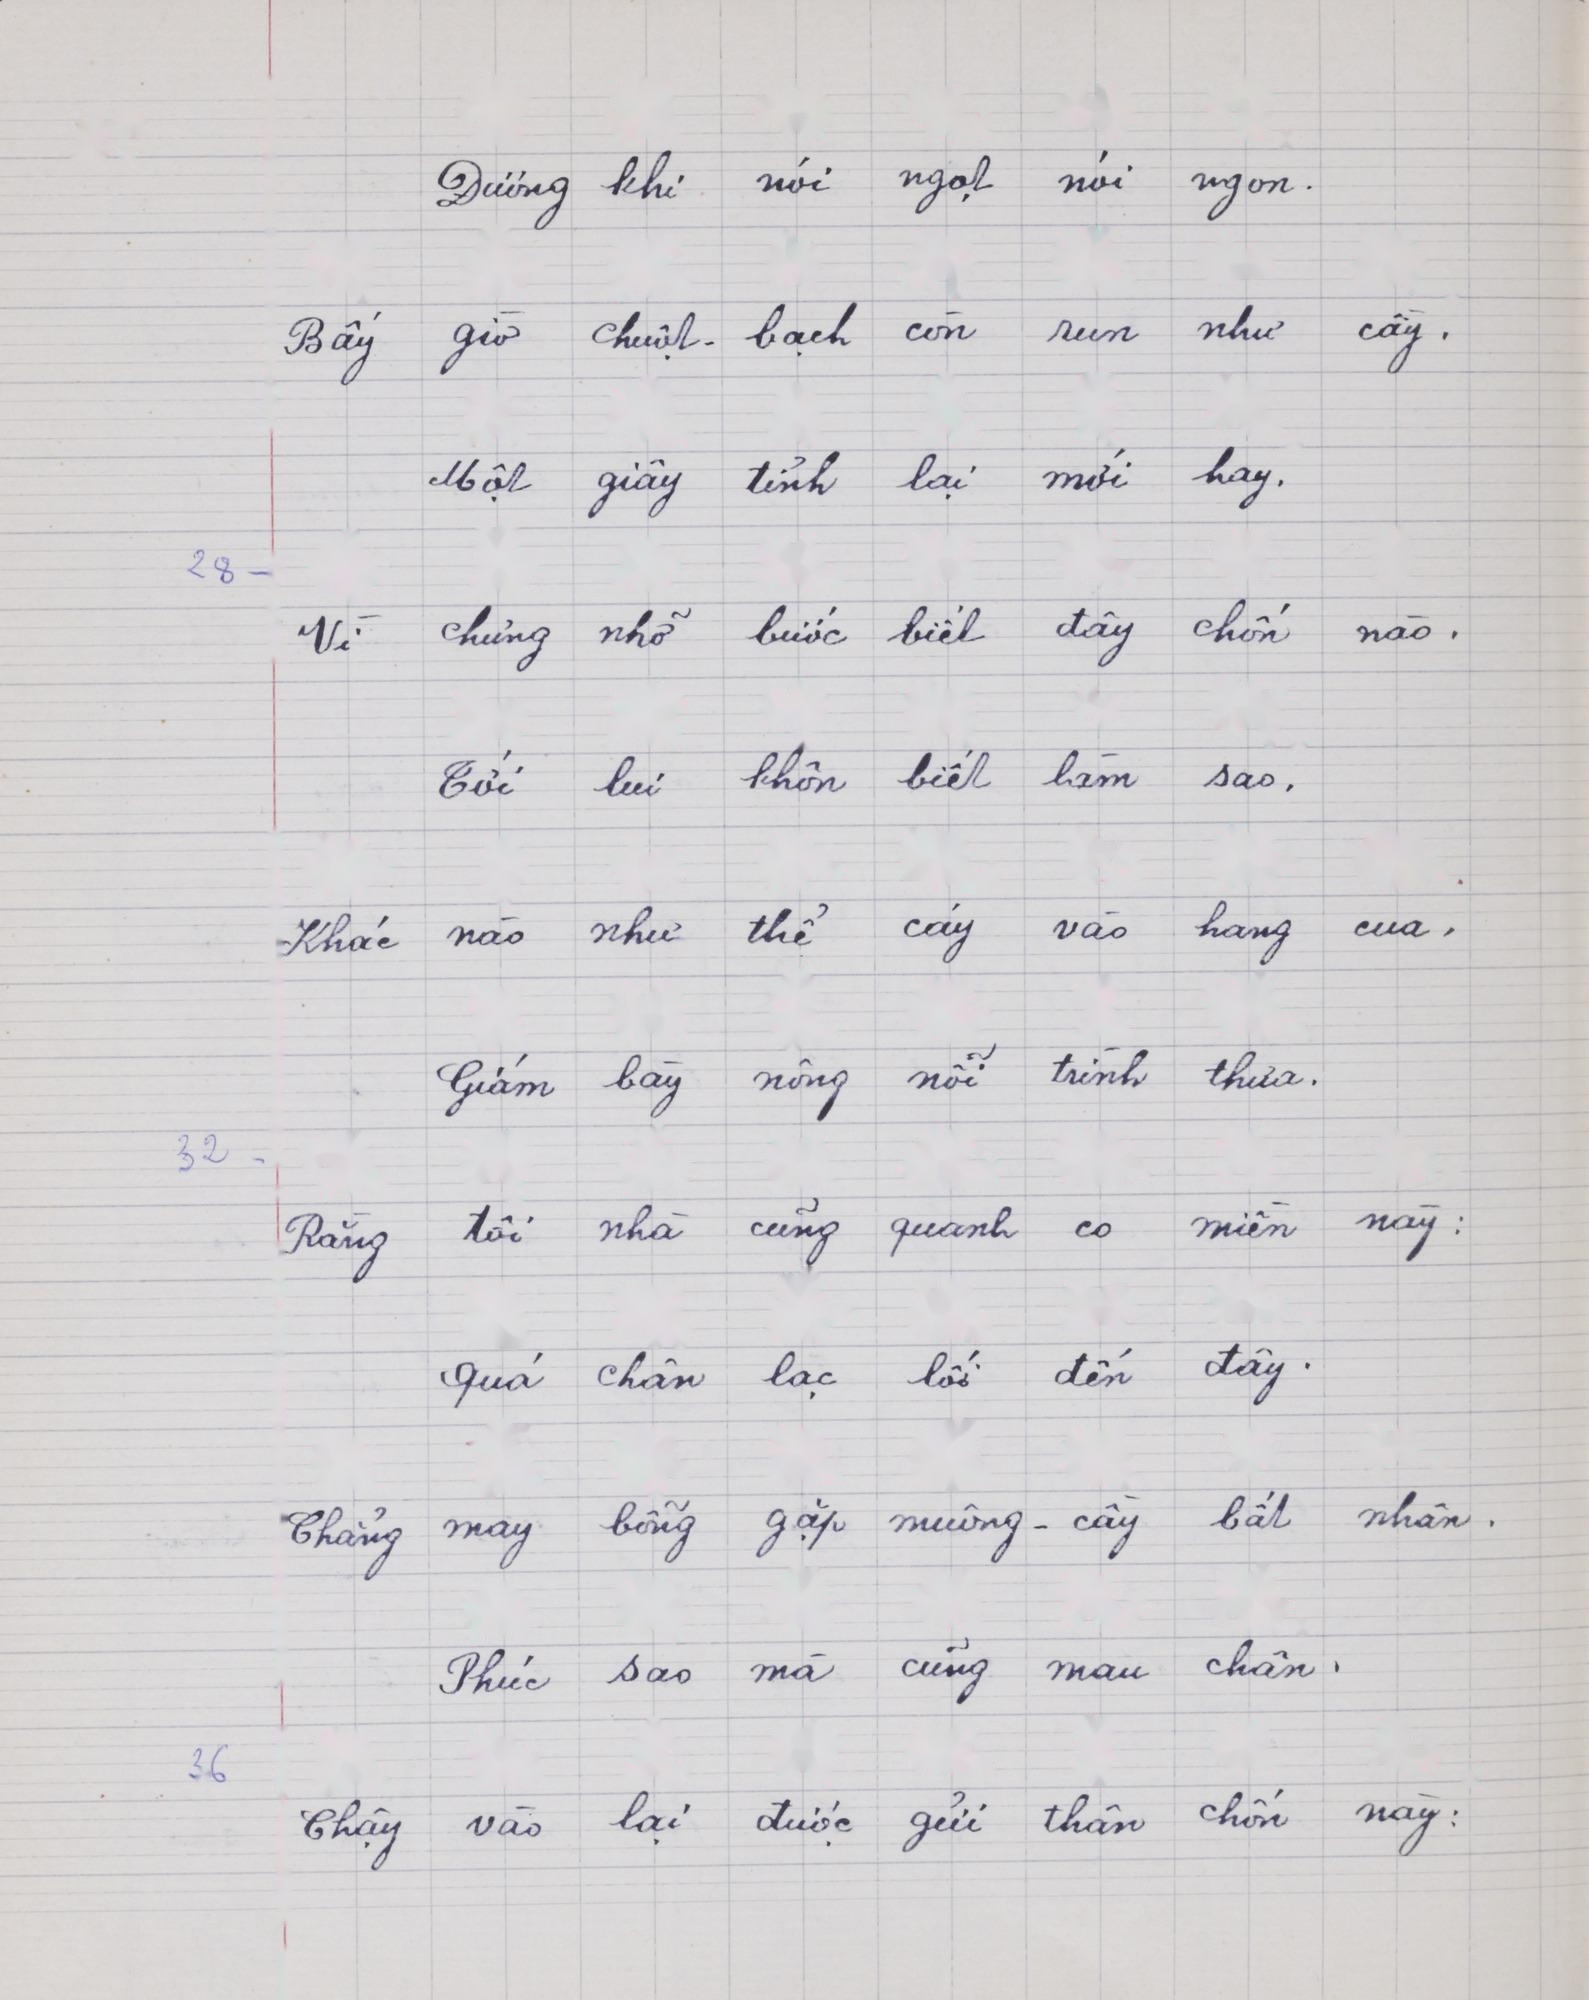 Dương khi nói ngọt nói ngon.
Bấy giờ chuột-bạch còn run như cầy.
Một giây tỉnh lại mới hay.
28-
Vì chưng nhỡ bước biết đây chốn nào.
Tới lui khôn biết làm sao.
Khác nào như thể cáy vào hang cua.
Giám bày nông nỗi trình thưa.
32-
Rằng tôi nhà cũng quanh co miền này:
Quá chân lạc lối đến đây.
Chẳng may bỗng gặp muông-cầy bất nhân.
Phúc sao mà cũng mau chân.
36
Chậy vào lại được gửi thân chốn này: